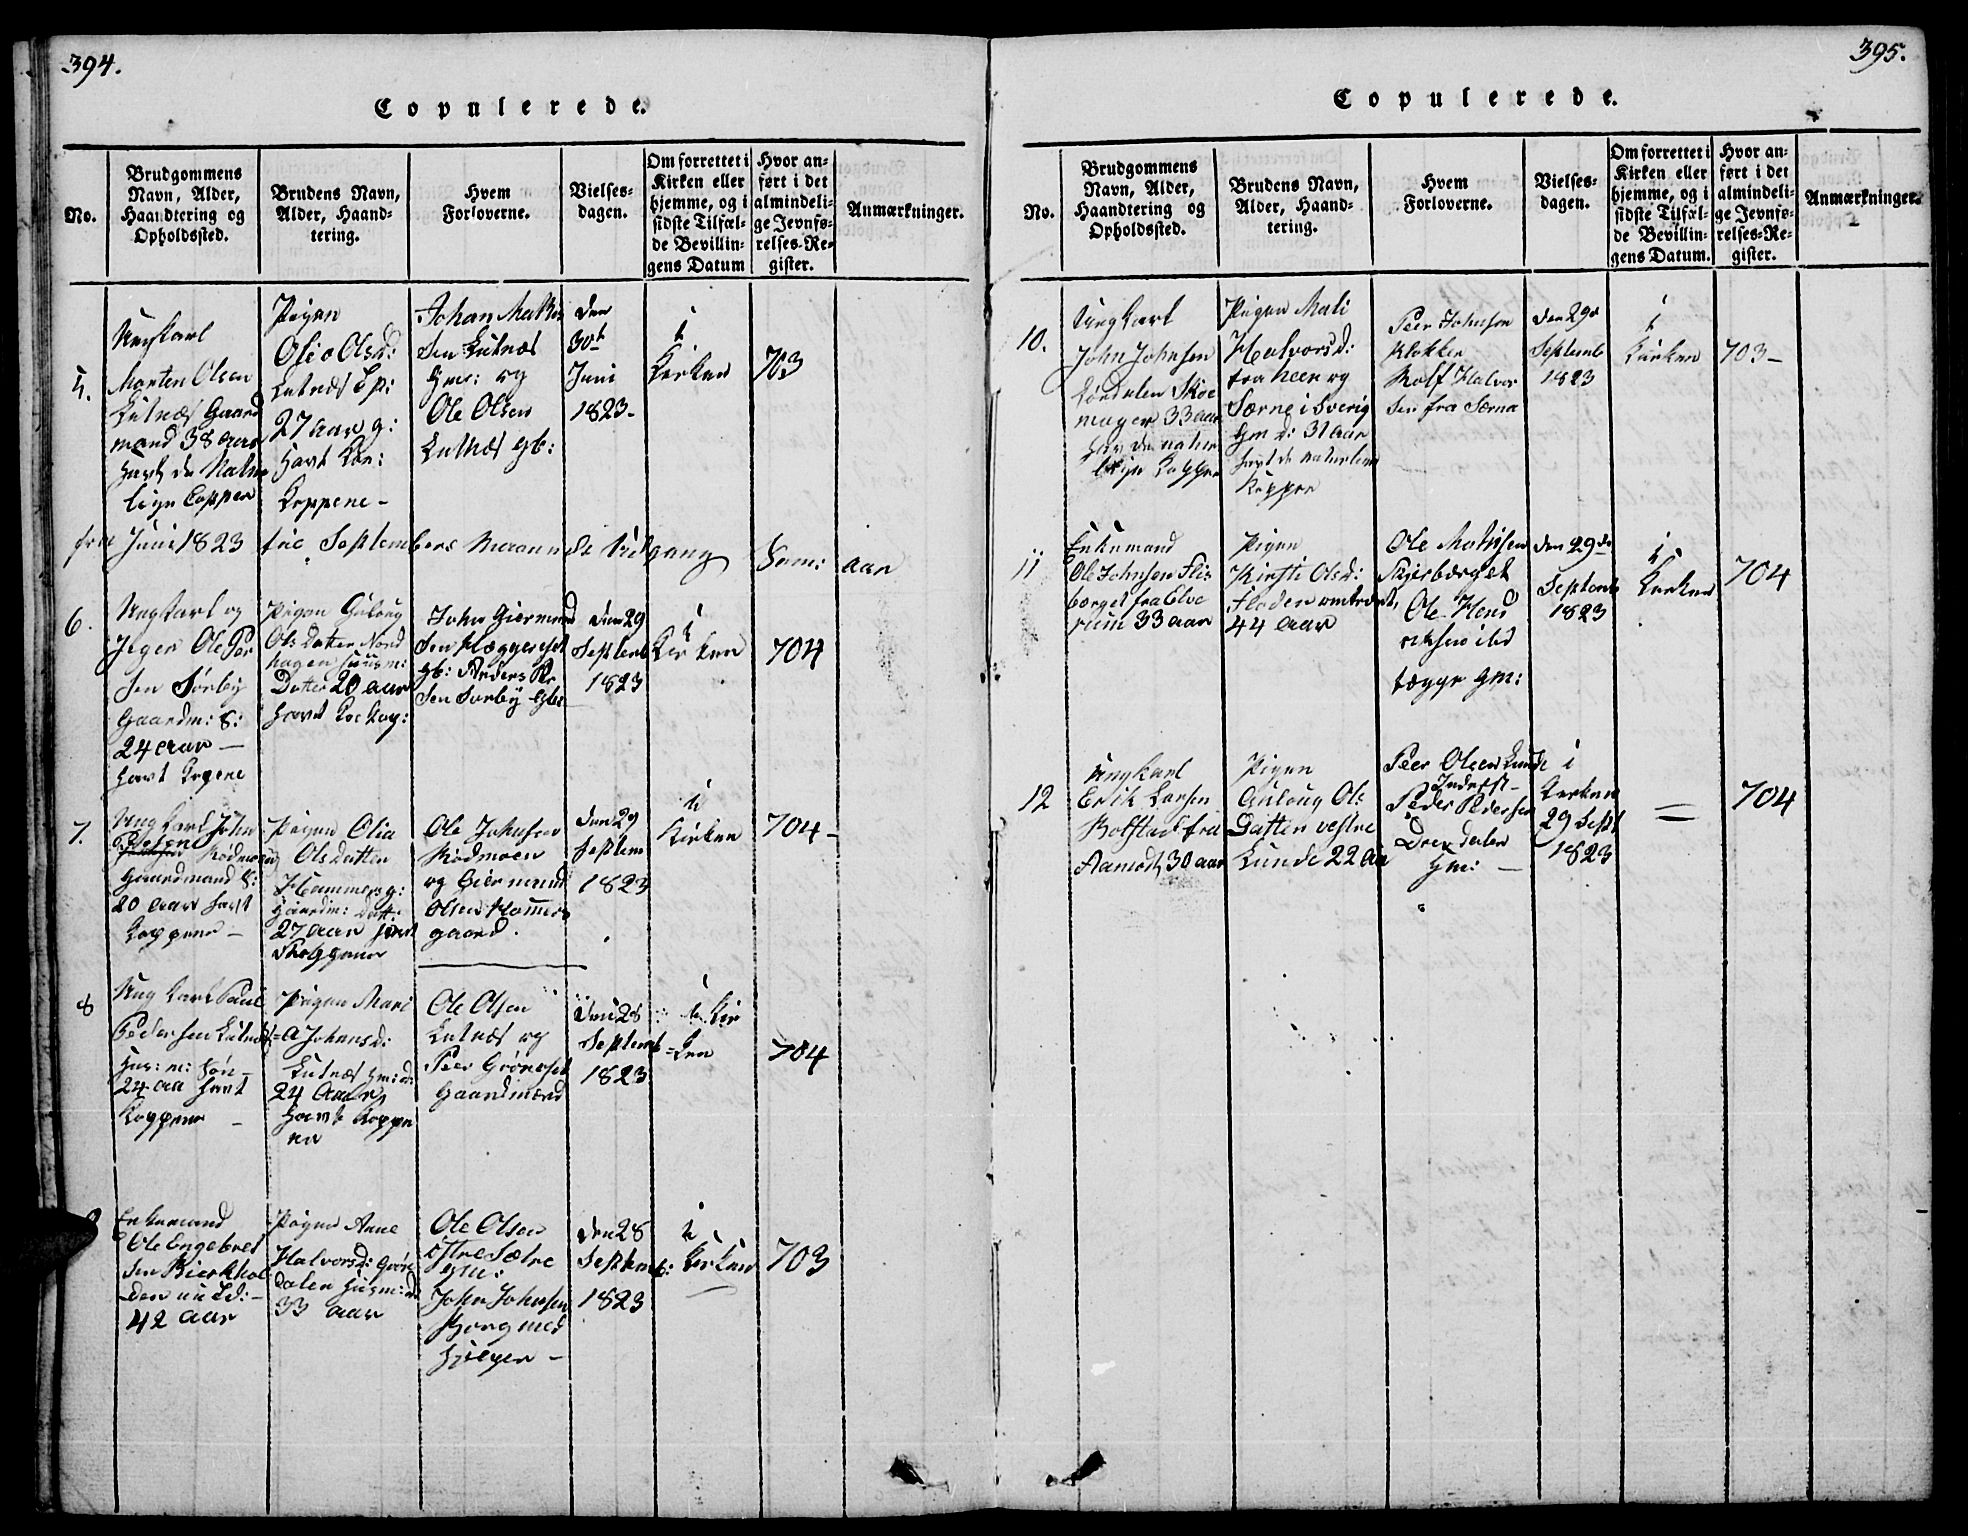 394.
Copulerede.
No.
Brudgommens
Navn, Alder,
Haandtering og
Opholdssted.
Brudens Navn,
Alder, Haand-
tering.
Hvem
Forloverne.
Vielses-
dagen.
Om forrettet i
Kirken eller
hjemme, og i
sidste Tilfæl-
de Bevillin-
gens Datum
Hvor an-
ført i det
almindeli-
ge Jevnfø-
relses-Re-
gister.
Anmærkninger.
5.
Ungkarl
Morten Olsen
Lutnæs Gaard
mand 38 aar
havt de Natur
lige Copper
Pigen
Olia Olsd:
Lutnæs
27 aar g:
havt
Koppene -
Johan
Sen Lutnæs
Gm: og
Ole Olsen
Lutnæs gb:
den
30t
Juni
1823-
i
Kirken
703
fra Juni 1823 til Septembers Maaneds Udgang Sam: Aar
6.
Ungkarl og
Jeger Ole Per
Sen Sørby
Gaardm: S:
24 aar —
havt
Pigen Guloug
Olsdatter Nord
hagen Huusm:
Datter 20 aar
havt
John Giermund
Sen
gb: Anders Pe
Sen Sørby
den 29
Septemb
1823
i
Kirken
704
7.
Ung Karl John
Olsen
Rødmoen
Gaardmand S:
20 aar havt
Koppene -
Pigen Olia
Olsdatter
Hammersg:
Gaardm: Datt:
27 aar havt
Koppene
Ole Johnsen
Rødmoen
og Giermund
Olsen Hammers
gaard.
den 29
Septem
1823
i
Kirken
704-
8
Ung Karl Paul
Pedersen Lutnæs
Hus: m: Søn -
24 aa havt
Koppene -
Pigen Mari
=a Johansd:
Lutnæs Hm: d:
24 Aar
havt Koppe
ne
Ole Olsen
Lutnæs og
Peer Grønoset
Gaardmænd
den 28
Septemb
1823
i Kir
=ken
704
9
Enkemand
Ole Engebret
Sen Bierkhol
42 aar
Pigen Anne
Halvorsd: Grøn
dalen Husm: d
33 aar
Ole Olsen
østre Sætre
gm:
John Johnsen
Borg med
den 28
Septemb:
1823
i
Kirken
703
395.
Copulerede.
No.
Brudgommens
Navn, Alder,
Haandtering og
Opholdssted.
Brudens Navn,
Alder, Haand-
tering.
Hvem
Forloverne.
Vielses-
dagen.
Om forrettet i
Kirken eller
hjemme, og i
sidste Tilfæl-
de Bevillin-
gens Datum.
Hvor an-
ført i det
almindeli-
ge Jevnfø-
relses-Re-
gister.
Anmærkninger.
10.
Ungkarl
John Johnsen
Lørdalen Skoe
mager 33 aar
havt de natur
lige Kopper
Pigen Mali
Halvorsd:
fra Heen og
Særne i Sverig
Gm d: 31 aar
havt de naturlige
Kopper
Peer Johnsen
Klokker
Rolf Halvor
Sen fra Særna
den 29de
Septemb
1823
i
Kirken
703-
11
Enkemand
Ole Johnsen Flis
berget fra Elve
rum 33 aar
Pigen
Kirsti Olsd:
Floden
44 aar
Ole Mathisen
Ole Hend
riksen ibd
begge gm:
den 29de
Septemb
1823
i
Kirken
704
12
Ungkarl
Erik Larsen
Bolstad fra
Aamodt 30 aar
Pigen
Guloug Ols
Datter vestre
Lunde 22 aar
Peer Olsen Lunde
Peder Pedersen
Dreydalen
Gm: —
i
Kirken
29 Sept
1823
=
704